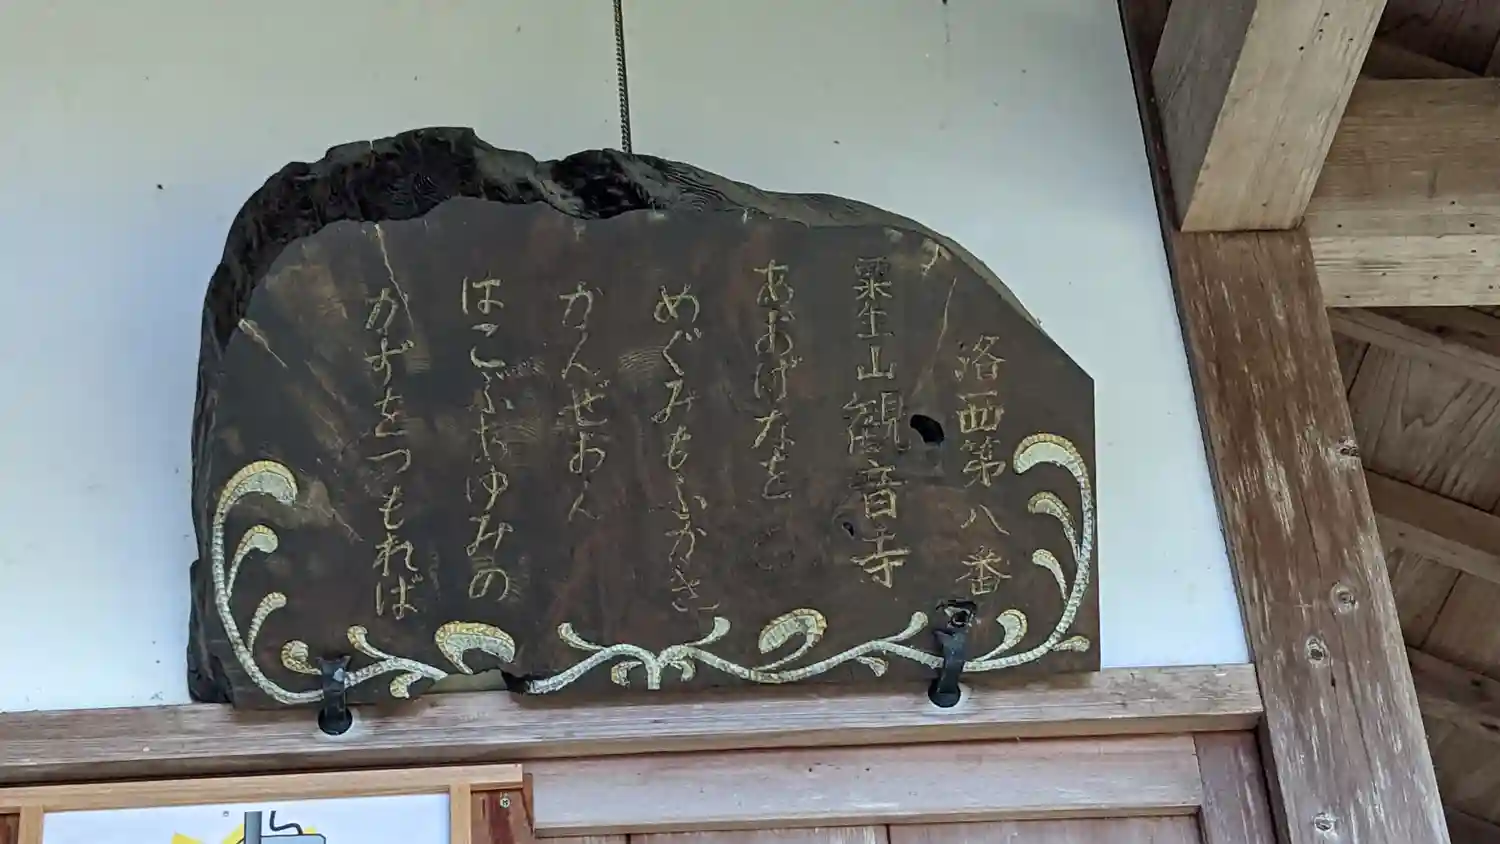 洛西第八番
粟生山観音寺
あおげなを
めぐみもふかき
かんぜおん
はこぶあゆみの
かずをつもれば